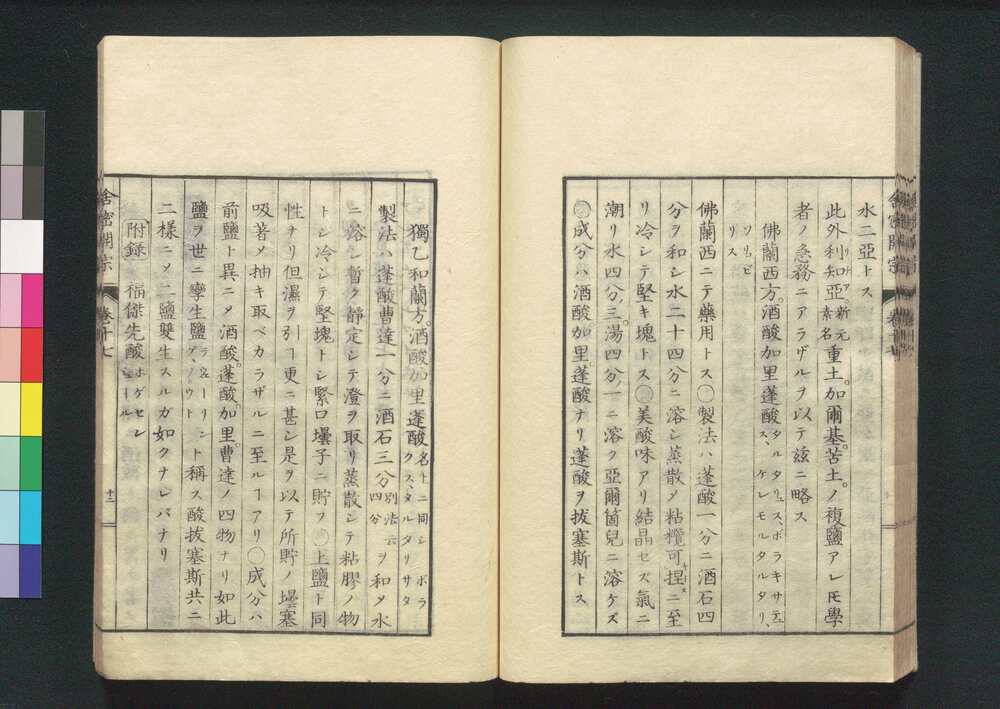 水二亞トス
此外利知亞リチア新元素名重土。加爾基。苦土。ノ複鹽アレ𪜈學
者ノ急務ニアラザルヲ以テ茲ニ略ス
佛蘭西方。酒酸加里蓬酸タルタリュス、ボラキサテュス、ケレモルタルタリ、
ソリュビリス
佛蘭西ニテ藥用トス〇製法ハ蓬酸一分ニ酒石四
分ヲ和シ水二十四分ニ溶シ蒸散メ粘纜可捏ニ至
リ冷シテ堅キ塊トス〇美酸味アリ結晶セズ氣ニ
潮リ水四分。三湯四分。一ニ溶ク亞爾箇兒ニ溶ケズ
〇成分ハ酒酸加里。蓬酸ナリ蓬酸ヲ拔塞斯トス
舍密開宗 卷十七
獨乙和蘭方。酒酸加里蓬酸名上ニ同シ ボラクス、タルタリサタ
製法ハ蓬酸曹達一分ニ酒石三分別法云四分ヲ和メ水
ニ溶シ暫ク静定シテ澄ヲ取リ蒸散シテ粘膠ノ物
トシ冷シテ堅塊トシ緊口壜子ニ貯フ〇上鹽ト同
性ナリ但濕ヲ引ヿ更ニ甚シ是ヲ以テ所貯ノ壜塞
吸著メ抽キ取ベカラザルニ至ルヿアリ〇成分ハ
前鹽ト異ニメ酒酸。蓬酸。加里。曹達ノ四物ナリ如此
鹽ヲ世ニ孿生鹽ト稱ス酸拔塞斯共ニ
二樣ニメ二鹽雙生スルガ如クナレバナリ
附録 福傑先酸ホゲセレ
舍密開宗 卷十七 十二